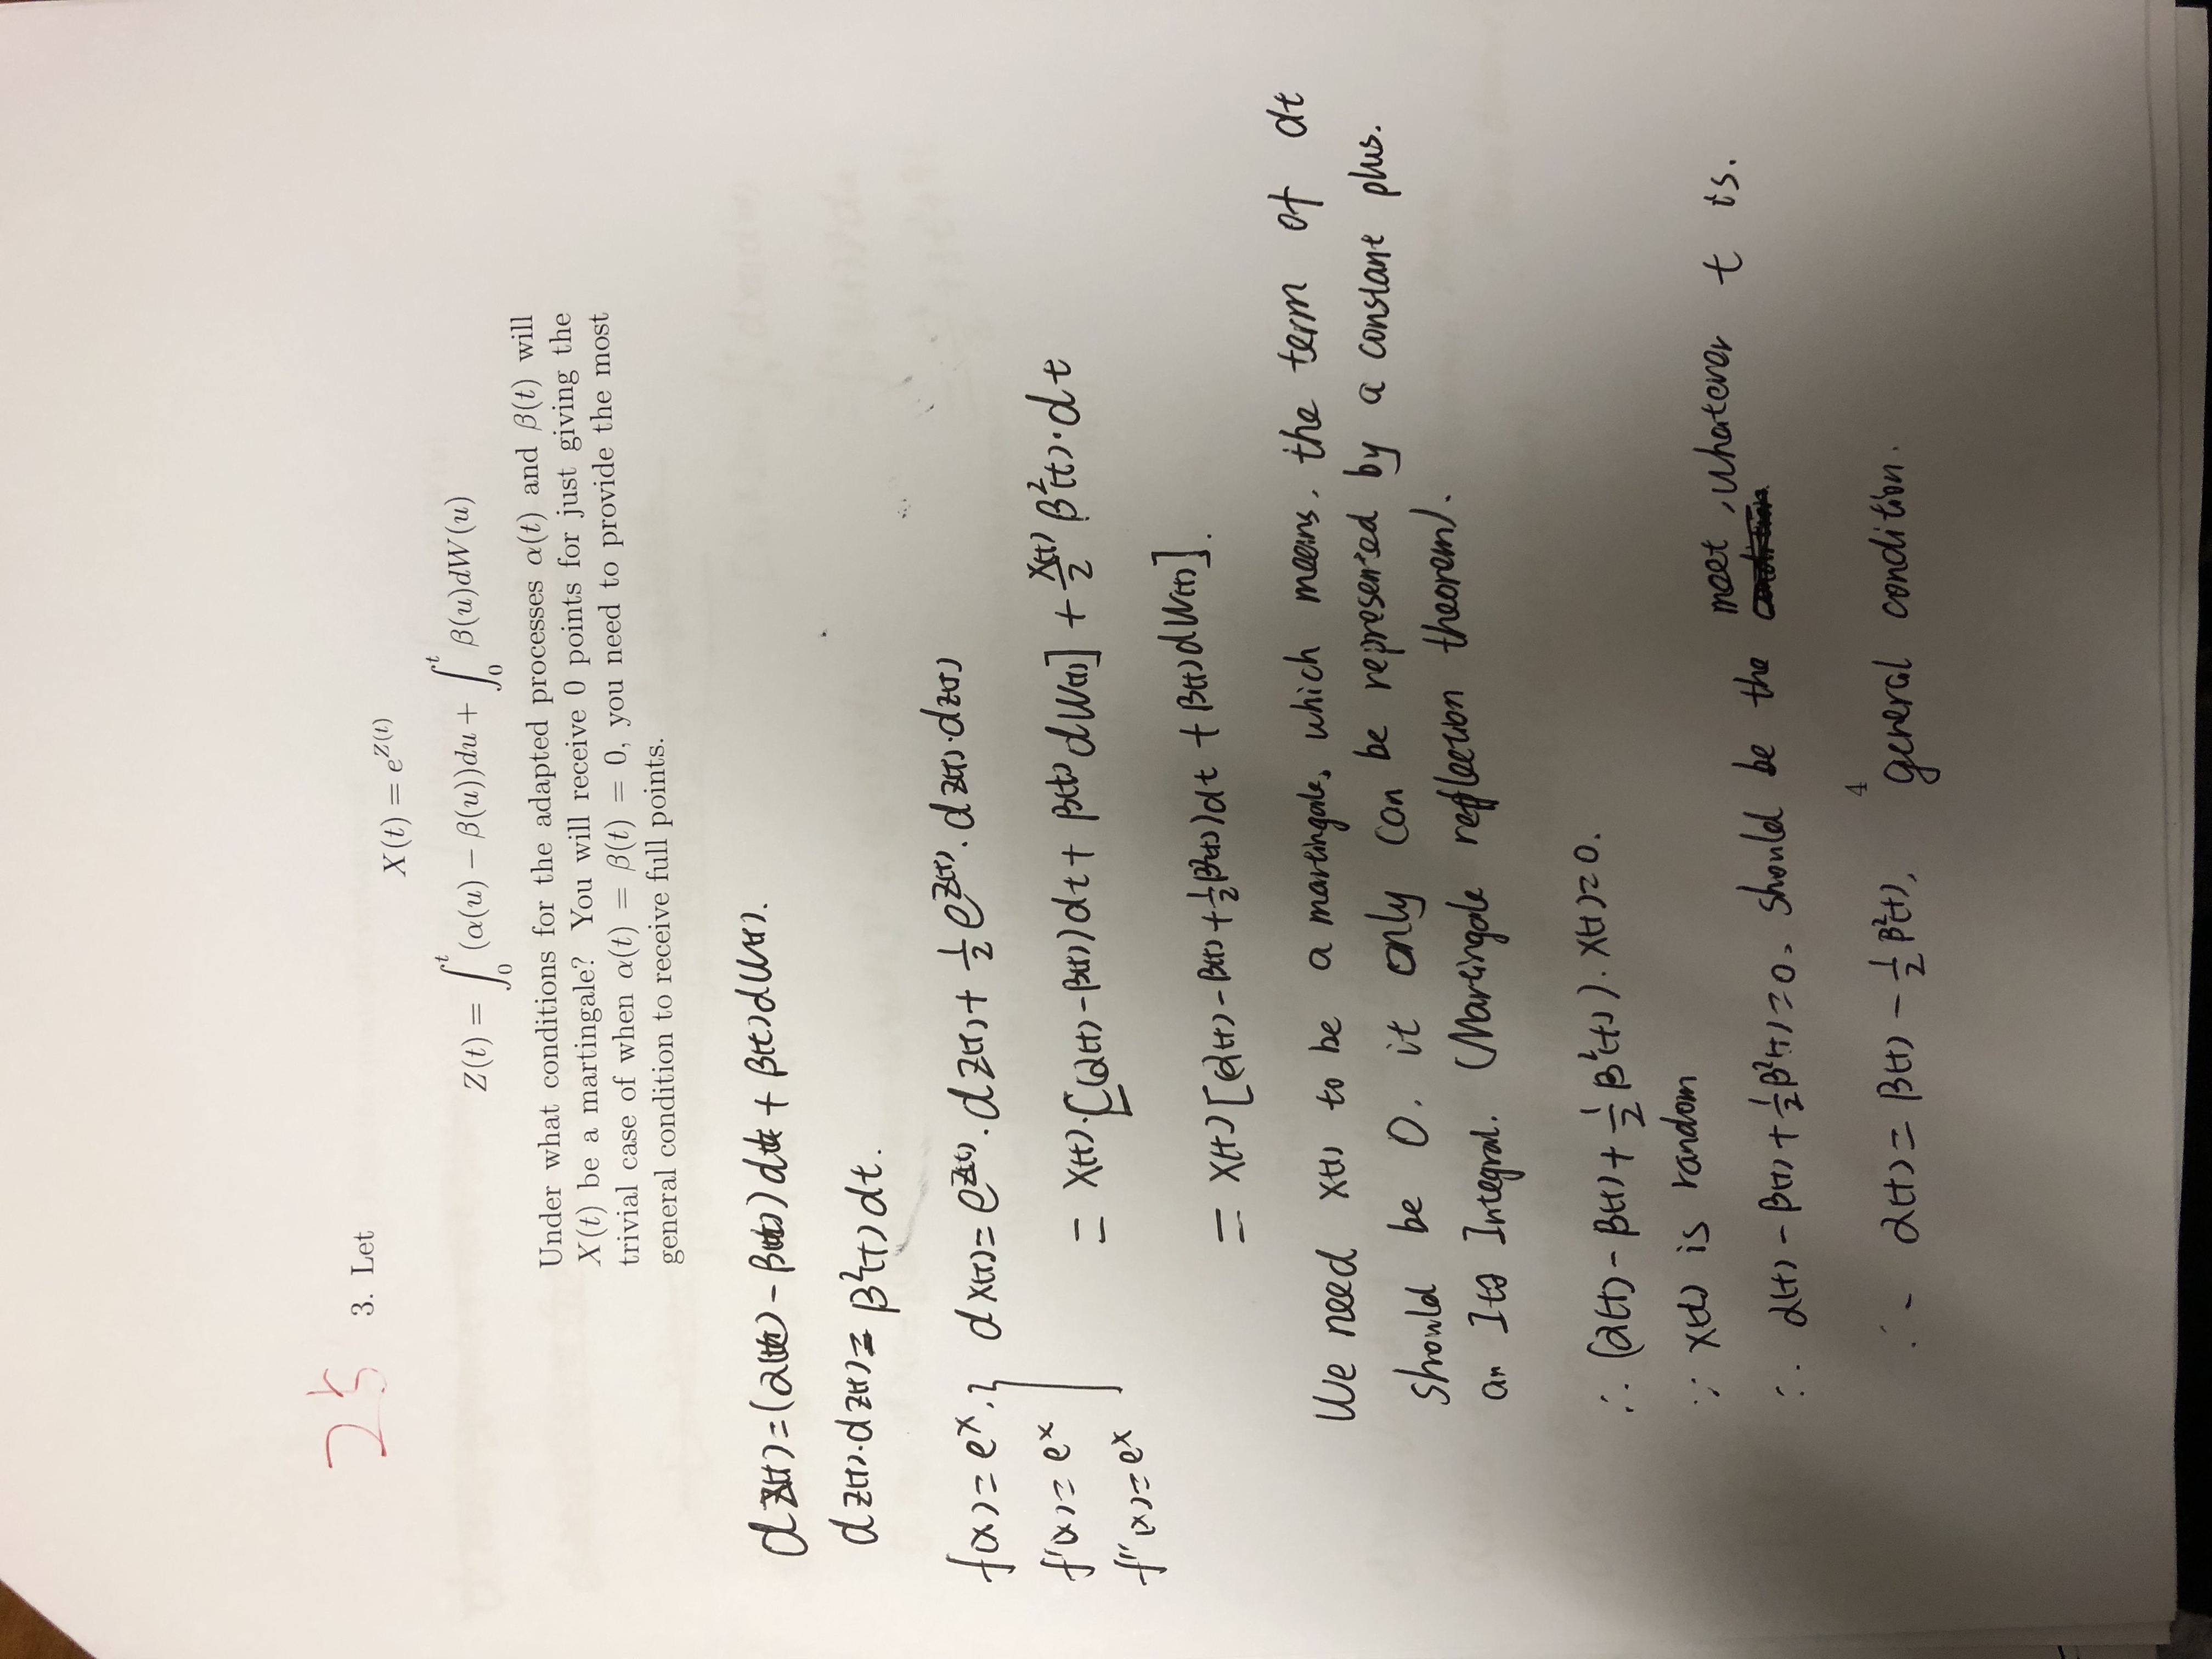 25
3. Let
X(t) = e^{Z(t)}
Z(t) = ∫_0^t (α(u) − β(u))du + ∫_0^t β(u)dW(u)
Under what conditions for the adapted processes α(t) and β(t) will
X(t) be a martingale? You will receive 0 points for just giving the
trivial case of when α(t) = β(t) = 0, you need to provide the most
general condition to receive full points.
dZ(t) = (α(t) − β(t)) dt + β(t) dW(t).
dZ(t)·dZ(t) = β²(t) dt.
f(x) = e^x. } dX(t) = e^{Z(t)}. dZ(t) + 1/2 e^{Z(t)}. dZ(t)·dZ(t)
f'(x) = e^x
= X(t)·[(α(t) − β(t)) dt + β(t) dW(t)] + X(t)/2 β²(t)·dt
f''(x) = e^x
= X(t) [(α(t) − β(t) + 1/2 β²(t)) dt + β(t) dW(t)].
We need X(t) to be a martingale, which means, the term of dt
should be 0. it only can be represented by a constant plus.
an Itô Integral. (Martingale reflection theorem).
∴ (α(t) − β(t) + 1/2 β²(t)). X(t) = 0.
∵ X(t) is random
∴ α(t) − β(t) + 1/2 β²(t) = 0. should be the meet, whatever t is.
4
∴ α(t) = β(t) − 1/2 β²(t), general condition.